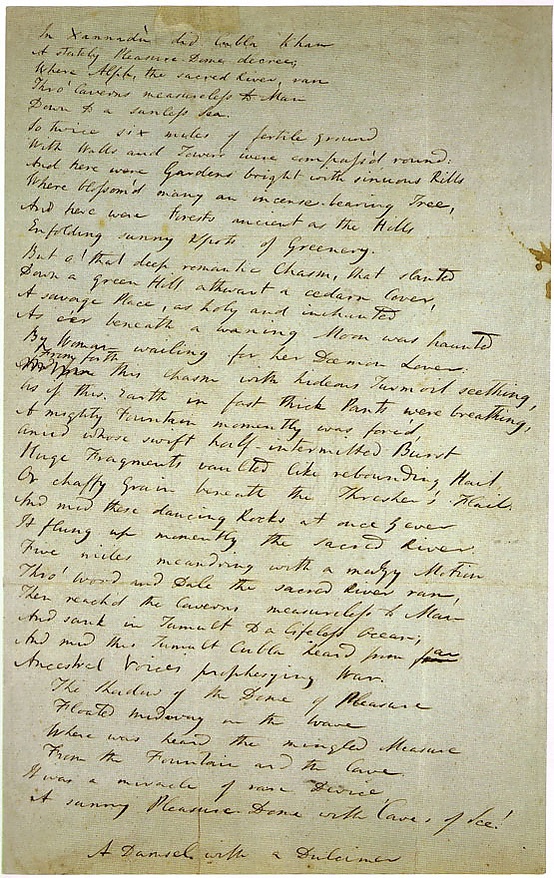 In Xannadù did Cubla Khan
A stately Pleasure-Dome decree;
Where Alph, the sacred River, ran
Thro' Caverns measureless to Man
Down to a sunless Sea.
So twice six miles of fertile ground
With Walls and Towers were compass'd round:
And here were Gardens bright with sinuous Rills
Where blossom'd many an incense-bearing Tree,
And here were Forests ancient as the Hills
Enfolding sunny Spots of Greenery.
But o! that deep romantic Chasm, that slanted
Down a green Hill athwart a cedarn Cover,
A savage Place, as holy and inchanted
As e'er beneath a waning Moon was haunted
By Woman wailing for her Daemon Lover:
From forth this Chasm with hideous Turmoil seething,
As if this Earth in fast thick Pants were breathing,
A mighty Fountain momently was forc'd
Amid whose swift half-intermitted Burst
Huge Fragments vaulted like rebounding Hail,
Or chaffy Grain beneath the Thresher's Flail.
And mid these dancing Rocks at once & ever
It flung up momently the sacred River.
Five miles meandring with a mazy Motion
Thro' Wood and Dale the sacred River ran,
Then reach'd the Caverns measureless to Man
And sank in Tumult to a lifeless Ocean;
And mid this Tumult Cubla heard from far
Ancestral Voices prophesying War.
The Shadow of the Dome of Pleasure
Floated midway on the Wave
Where was heard the mingled Measure
From the Fountain and the Cave.
It was a miracle of rare Device,
A sunny Pleasure-Dome with Caves of Ice!
A Damsel with a Dulcimer